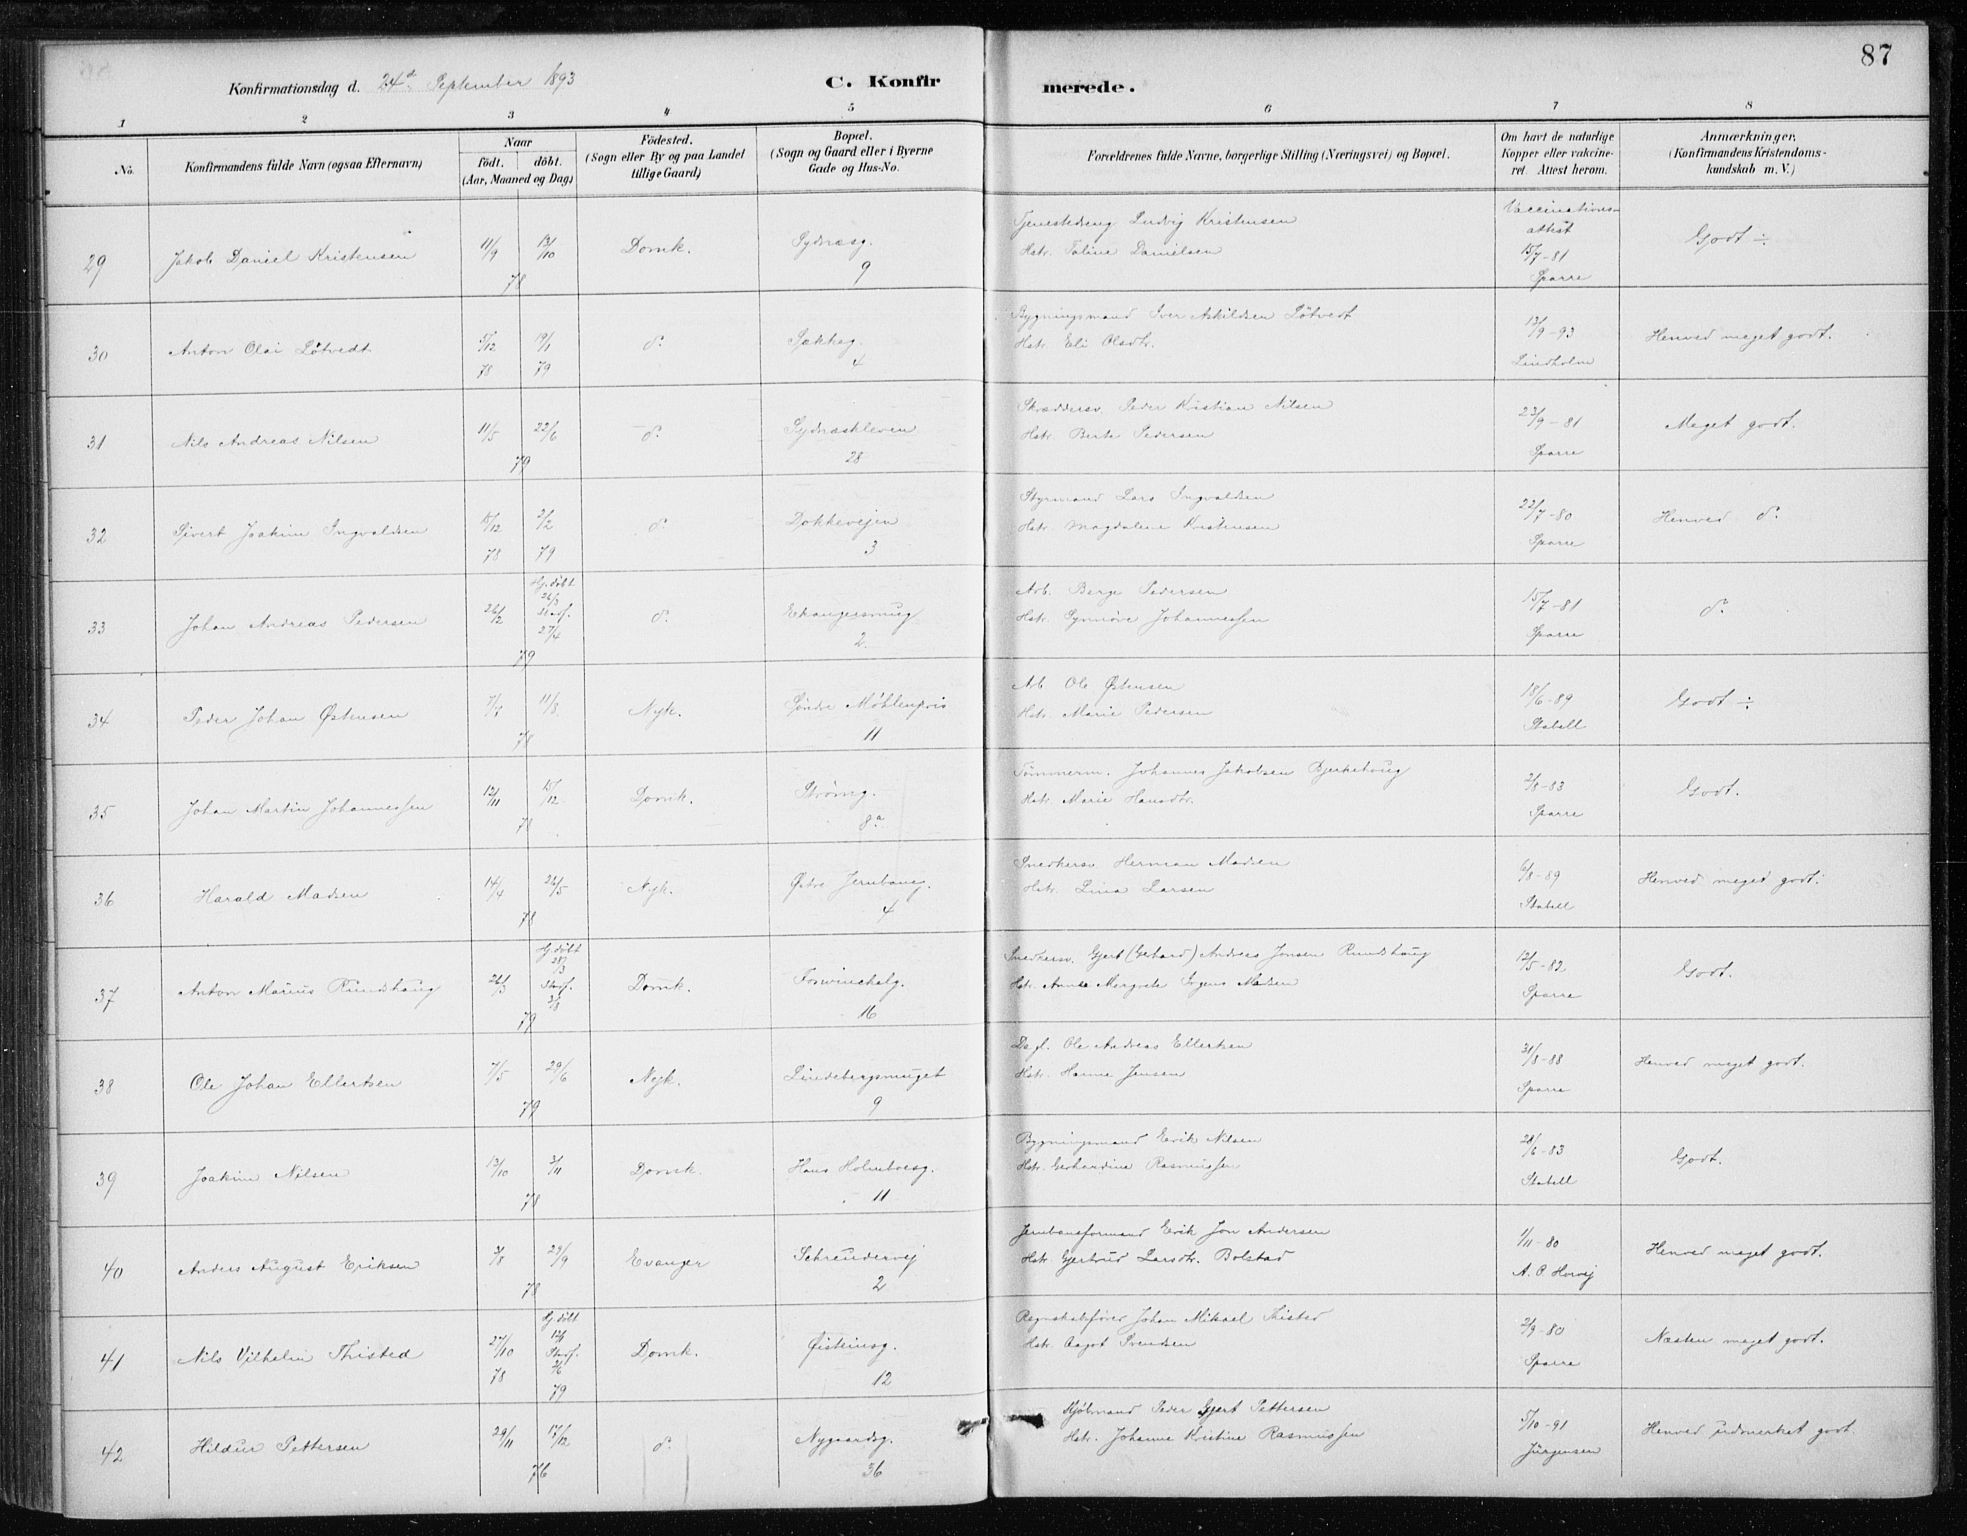 87
Konfirmationsdag d. 24de September 1893
C. Konfirmerede.
1 2 3 4 5 6 7 8
No.
Konfirmandens fulde Navn (ogsaa Efternavn)
Naar
födt. döbt.
(Aar, Maaned og Dag)
Födested.
(Sogn eller By og paa Landet
tillige Gaard)
Bopæl.
(Sogn og Gaard eller i Byerne
Gade og Hus-No.
Forældrenes fulde Navne, borgerlige Stilling (Næringsvei) og Bopæl.
Om havt de naturlige
Kopper eller vakcine-
ret. Attest herom.
Anmærkninger.
(Konfirmandens Kristendoms-
kundskab m. V.)
29 Jakob Daniel Kristensen 11/9 13/10 78 Domk. Sydnæsg. 9
Tjenestedreng Ludvig Kristensen
Hstr. Taline Danielsen
Vaccinations-
attest
15/7-81
Sparre
Godt ÷
30 Anton Olai Løtvedt 5/12 78 19/1 79 do Sækkeg. 4
Bygningsmand Iver Askildsen Løtvedt
Hstr. Eli Olsdtr.
13/9-93
Lindholm
Henved meget godt.
31 Nils Andreas Nilsen 11/5 22/6 79 do Sydnæskleven 28
Skræddersv. Peder Kristian Nilsen
Hstr. Berte Pedersen
23/9-81
Sparre
Meget godt.
32 Sivert Joakim Ingvaldsen 18/12 78 2/2 79 do Dokkevejen 3
Styrmand Lars Ingvaldsen
Hstr. Magdalene Kristensen
22/7-80
Sparre
Henved do
33 Johan Andreas Pedersen 26/2 Hj. døbt 26/3 Stadf. 27/4 79 do Ekangersmug 2
Arb. Berge Pedersen
Hstr. Synnøve Johannessen
15/7-81
Sparre
do
34 Peder Johan Østensen 11/8 78 Nyk. Søndre Møhlenpris 11
Arb. Ole Østensen
Hstr. Marie Pedersen
18/6-89
Stabell
Godt ÷
35 Johan Martin Johannessen 12/11 15/12 78 Domk. Strømg. 8a
Tømmerm. Johannes Jakobsen Bjerkehoug
Hstr. Marie Hansdtr.
2/8-83
Sparre
Godt.
36 Harald Madsen 14/4 26/5 78 Nyk. Østre Jernbaneg. 4
Snedkersv. Herman Madsen
Hstr. Lina Larsen
6/8-89
Stabell
Henved meget godt.
37 Anton Marius Rundhaug 26/3 Hj. døbt 28/3 Stadf. 3/8 79 Domk. Fosvinckelg. 16
Snedkersv. Gjert (Gerhard) Andreas Jonsen Rundhaug
Hstr. Anne Margrete Jrgens Madsen
12/5-82
Sparre
Godt.
38 Ole Johan Ellertsen 7/5 29/6 79 Nyk. Lindebergsmuget 9
Dagl. Ole Andreas Ellertsen
Hstr. Hanne Jensen
31/8-88
Sparre
Henved meget godt.
39 Joakim Nilsen 13/10 3/11 78 Domk. Hans Holmboesg. 11
Bygningsmand Erik Nilsen
Hstr. Gerhardine Rasmussen
28/6-83
Stabell
Godt.
40 Anders August Eriksen 3/8 29/9 78 Evanger Schreudervej 2
Jernbaneformand Erik Jon Andersen
Hstr. Gjertrud Larsdtr. Bolstad
1/11-80
A. O. Horvej
Henved meget godt.
41 Nils Vilhelm Thisted 27/10 78 Hj. døbt Stadf. 79 Domk. Øisteinsg. 12
Regnskabsfører Johan Mikael Thisted
Hstr. Aagot Svendsen
2/9-80
Sparre
Næsten meget godt.
42 Hildur Pettersen 29/11 17/12 76 do Nygaardsg. 36
Kjølmand Peder Gjert Pettersen
Hstr. Johanne Kristine Rasmussen
5/10-91
Jürgensen
Henved udmerket godt.